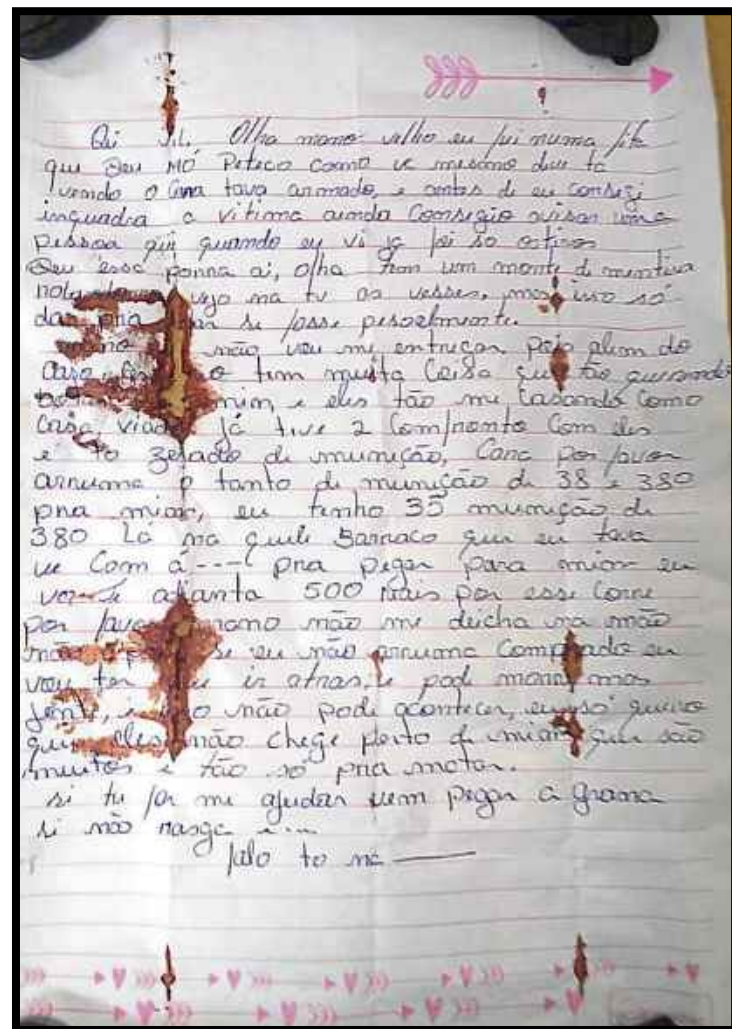 Olha mano velho eu fui numa fita
que Deu MÓ Peteco como vc mesmo deve ta
vendo o Cara tava armado, e antes de eu consegi
inquadra a vitima ainda Consegio avisar uma
pessoa que quando eu vi ja foi so os tiros
Deu essa porra ai, olha tem um monte de mentira
vejo na tv as vesses, mas isso só
dar pra se fosse pesoalmente.
não vou mi entregar, pois alem do
Caso tem muita Coisa que tão querendo
mim, e eles tão me Casando Como
Casa viado já tive 2 Comfronto Com eles
e to zerado de munição, Cara por favor
arruma o tanto de munição de 38 e 380
pra mim, eu tenho 35 munição de
380 Lá na quele Barraco que eu tava
ve Com á ---- pra pegar para mim eu
adianta 500 mais por esse Corre
por favor mano não me deicha na mão
se eu não arruma Comprado eu
vou ter que ir atras, e pode morre mas
jente, e isso não pode acontecer, eu só quero
que eles não chege perto de mim que são
muitos e tão só pra matar.
si tu for me ajudar vem pegar a grana
si não rasga
falo to na ———